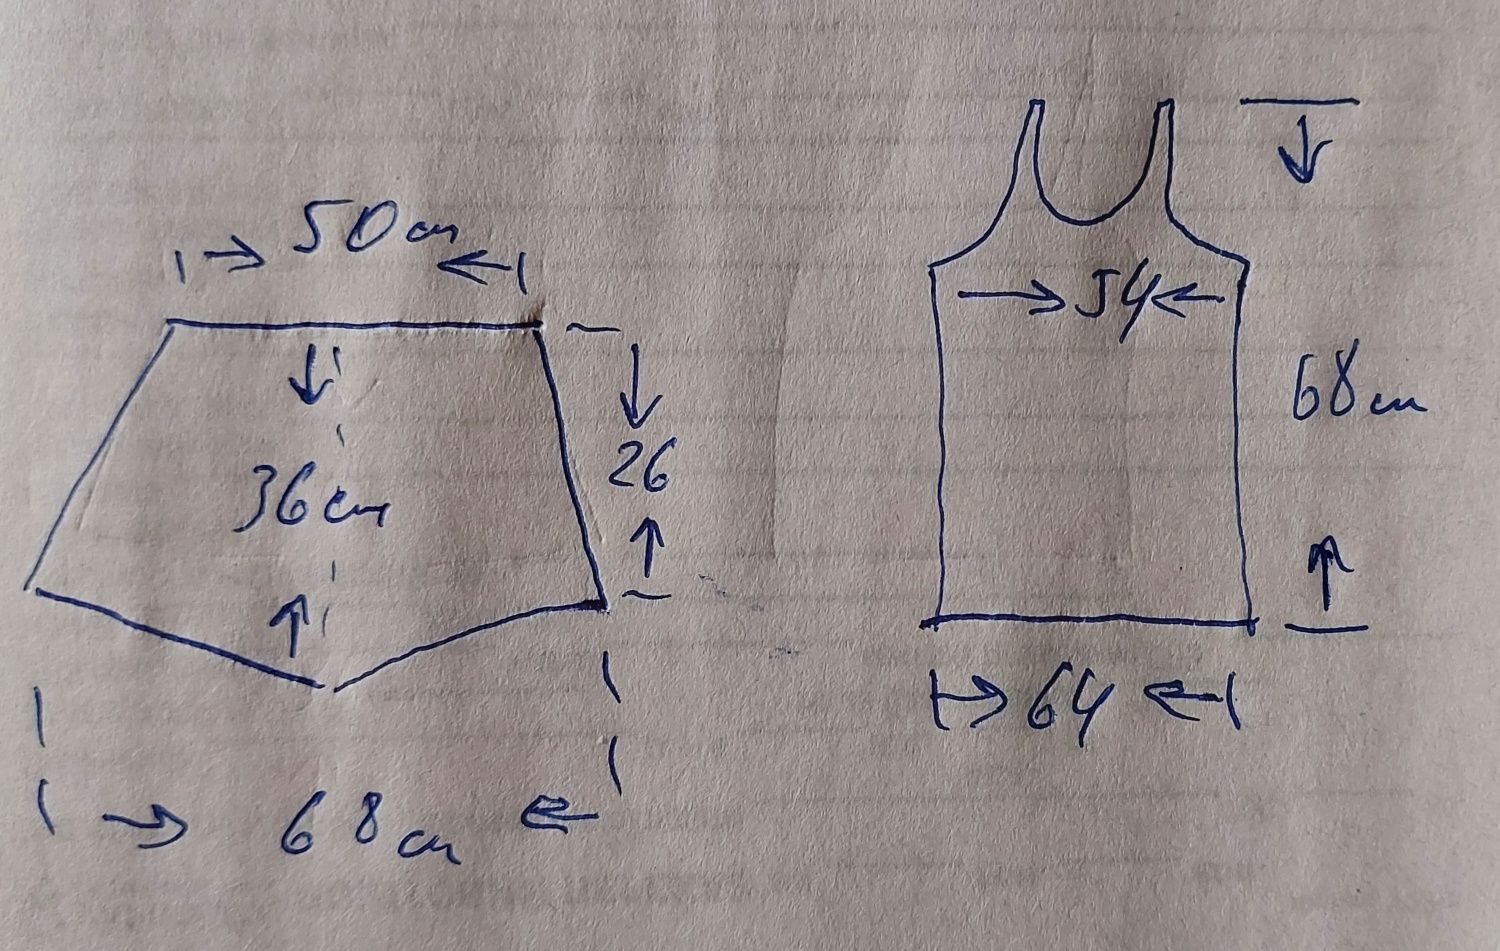 50cm
36cm
26
68cm
54
68cm
64